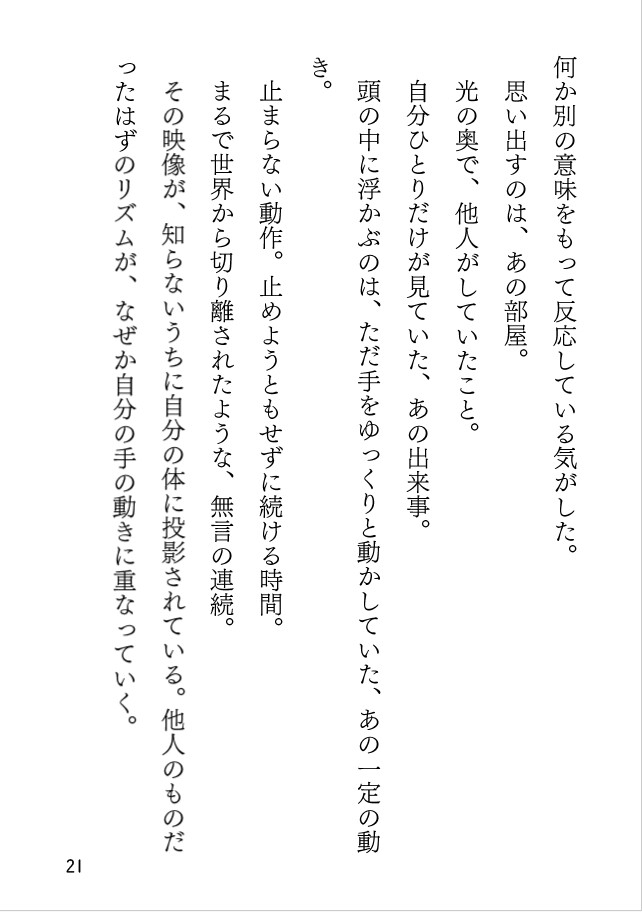 何か別の意味をもって反応している気がした。
思い出すのは、あの部屋。
光の奥で、他人がしていたこと。
自分ひとりだけが見ていた、あの出来事。
頭の中に浮かぶのは、ただ手をゆっくりと動かしていた、あの一定の動
き。
止まらない動作。止めようともせずに続ける時間。
まるで世界から切り離されたような、無言の連続。
その映像が、知らないうちに自分の体に投影されている。他人のものだ
ったはずのリズムが、なぜか自分の手の動きに重なっていく。
21